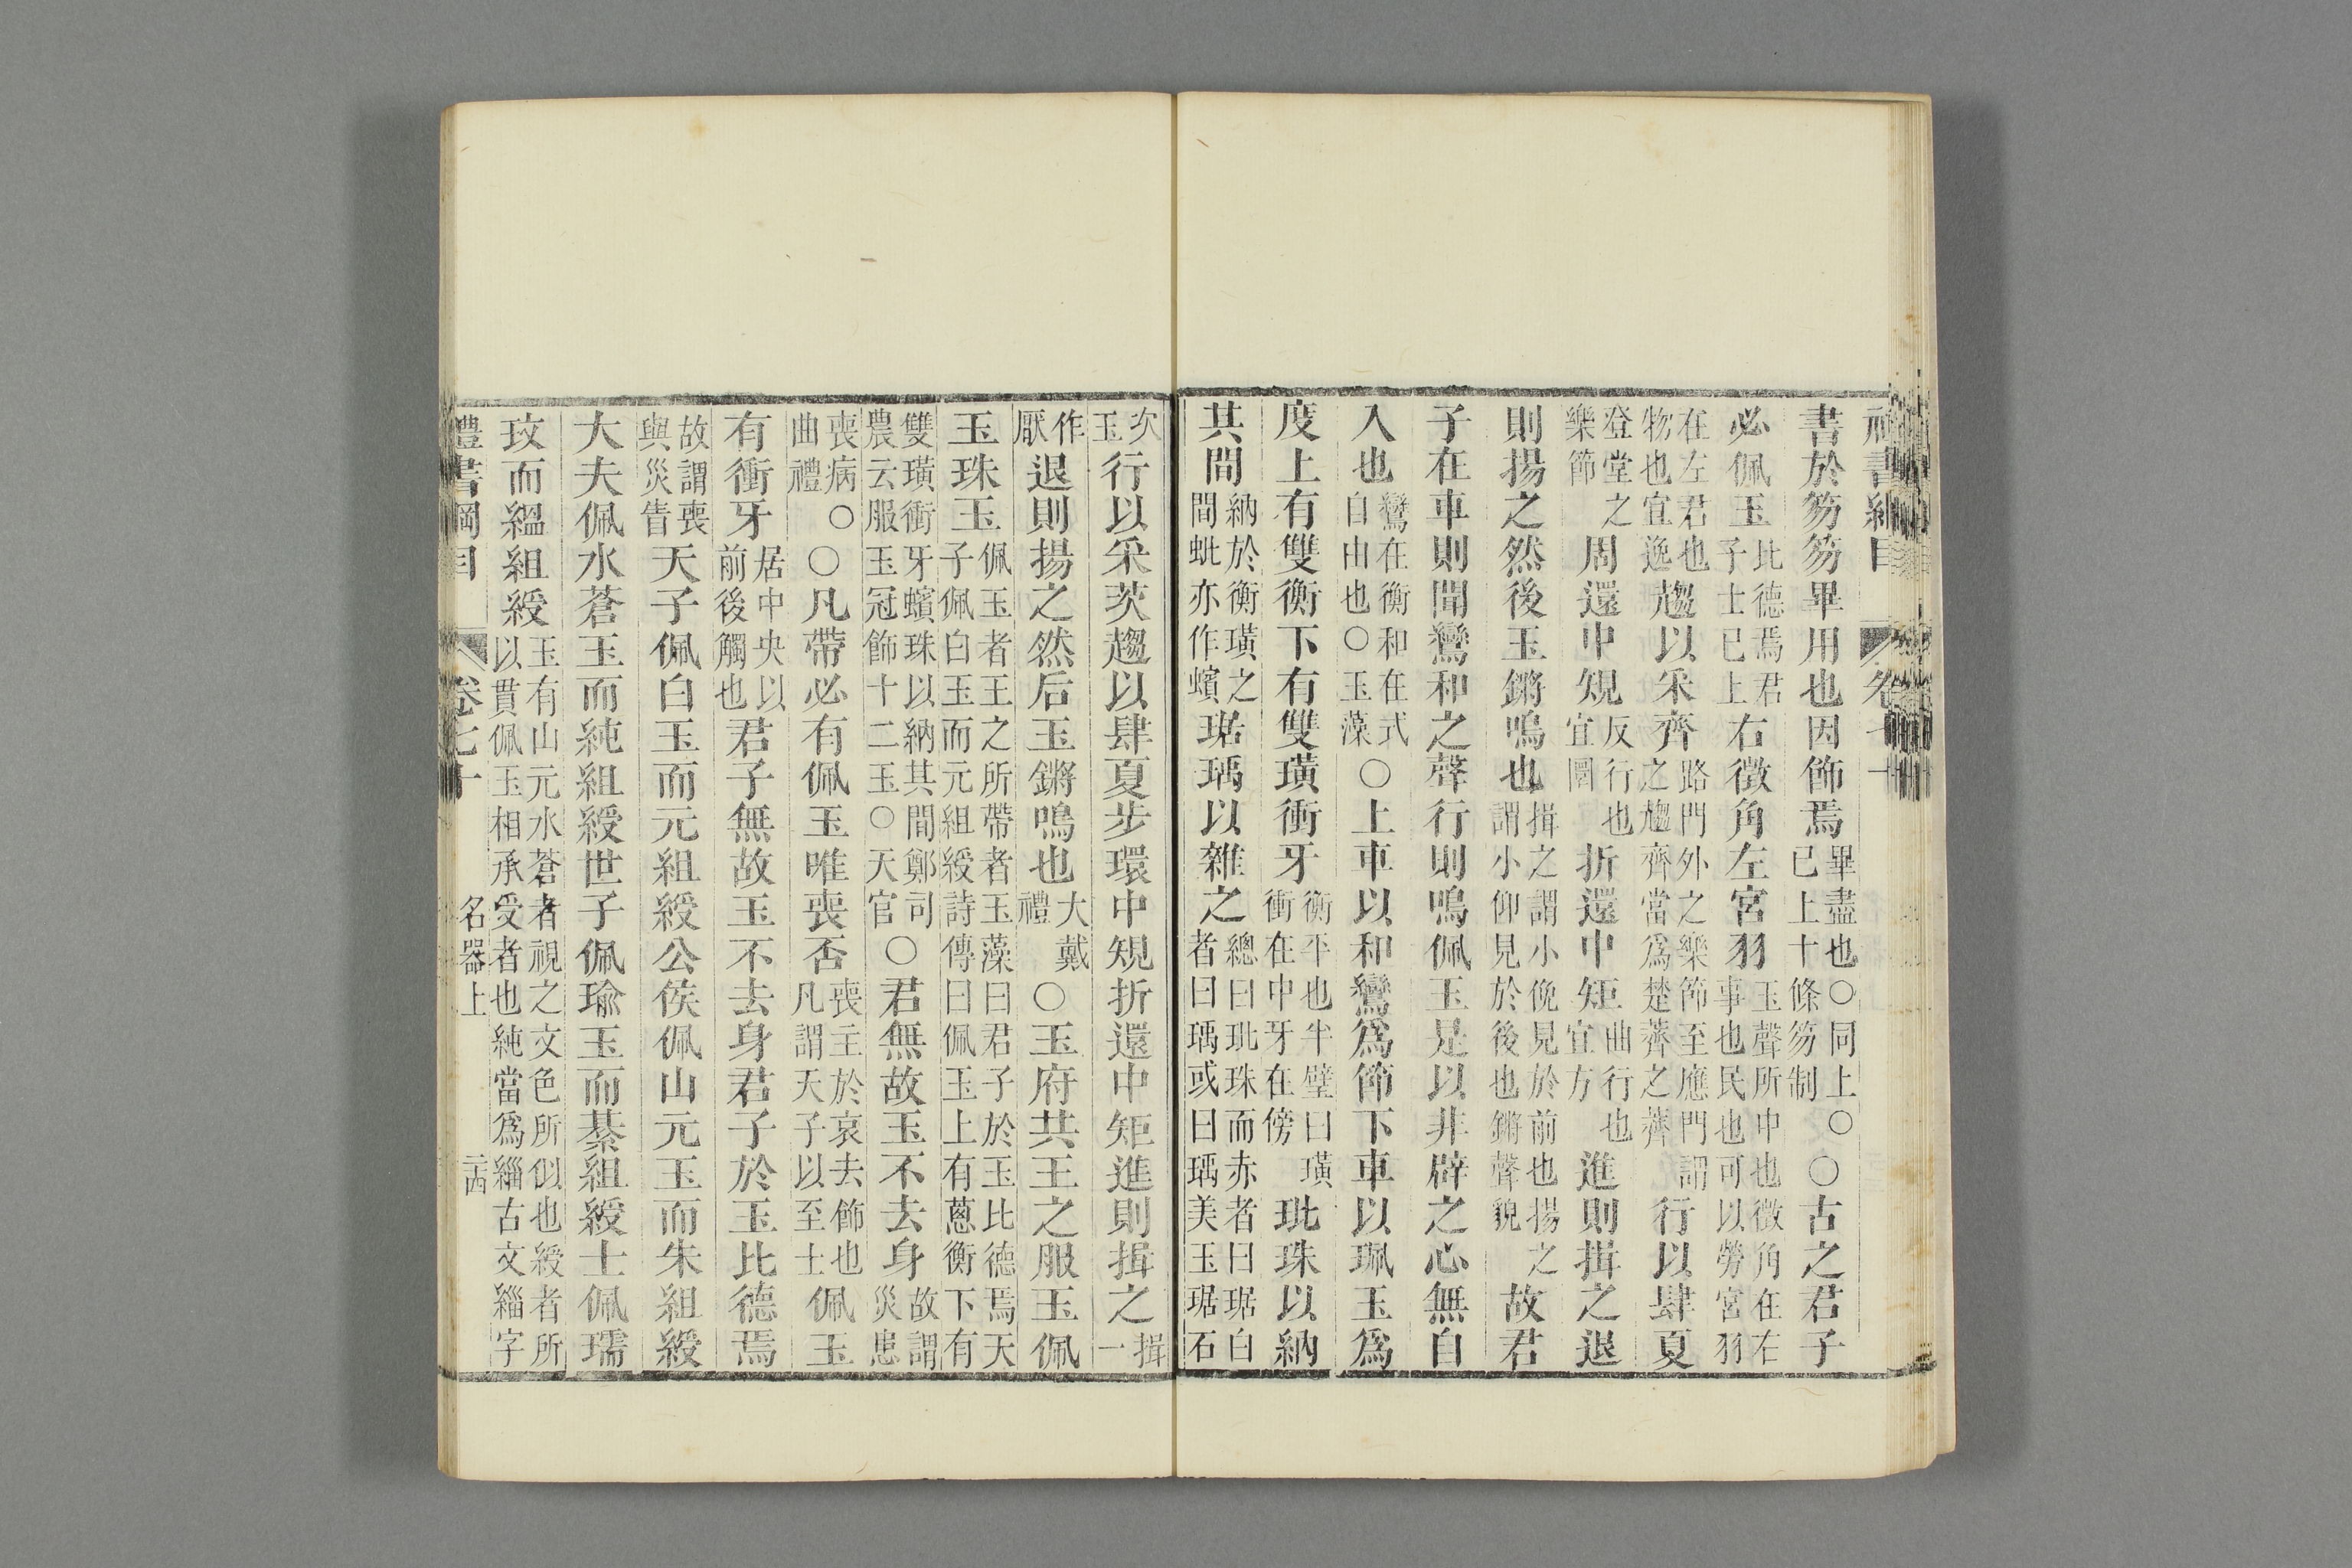 書於笏笏畢用也因飾焉畢盡也○同上○已上十條笏制○古之君子
必佩玉比德焉君子士已上右徵角左宮羽玉聲所中也徵角在右事也民也可以勞宮羽
在左君也物也宜逸趨以采齊路門外之樂節至應門謂之趨齊當爲楚薺之薺行以肆夏
登堂之樂節周還中規反行也宜圜折還中矩曲行也宜方進則揖之退
則揚之然後玉鏘鳴也揖之謂小俛見於前也揚之謂小仰見於後也鏘聲貌故君
子在車則聞鸞和之聲行則鳴佩玉是以非辟之心無自
入也鸞在衡和在式自由也○玉藻○上車以和鸞爲節下車以珮玉爲
度上有雙衡下有雙璜衝牙衡平也半璧曰璜衝在中牙在傍玭珠以納
其間納於衡璜之間蚍亦作蠙琚瑀以雜之總曰玭珠而赤者曰琚白者曰瑀或曰瑀美玉琚石
次玉行以采茨趨以肆夏步環中規折還中矩進則揖之揖一
作厭退則揚之然后玉鏘鳴也大戴禮○玉府共王之服玉佩
玉珠玉佩玉者王之所帶者玉藻曰君子於玉比德焉天子佩白玉而元組綬詩傳曰佩玉上有蔥衡下有
雙璜衝牙蠙珠以納其間鄭司農云服玉冠飾十二玉○天官○君無故玉不去身故謂災患
喪病○曲禮○凡帶必有佩玉唯喪否喪主於哀去飾也凡謂天子以至士佩玉
有衝牙居中央以前後觸也君子無故玉不去身君子於玉比德焉
故謂喪與災眚天子佩白玉而元組綬公侯佩山元玉而朱組綬
大夫佩水蒼玉而純組綬世子佩瑜玉而綦組綬士佩瓀
玟而縕組綬玉有山元水蒼者視之文色所似也綬者所以貫佩玉相承受者也純當爲緇古文緇字
禮書綱目 卷七十 名器上